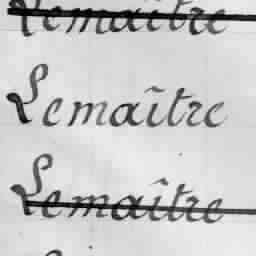 Lemaître
Lemaître
Lemaître